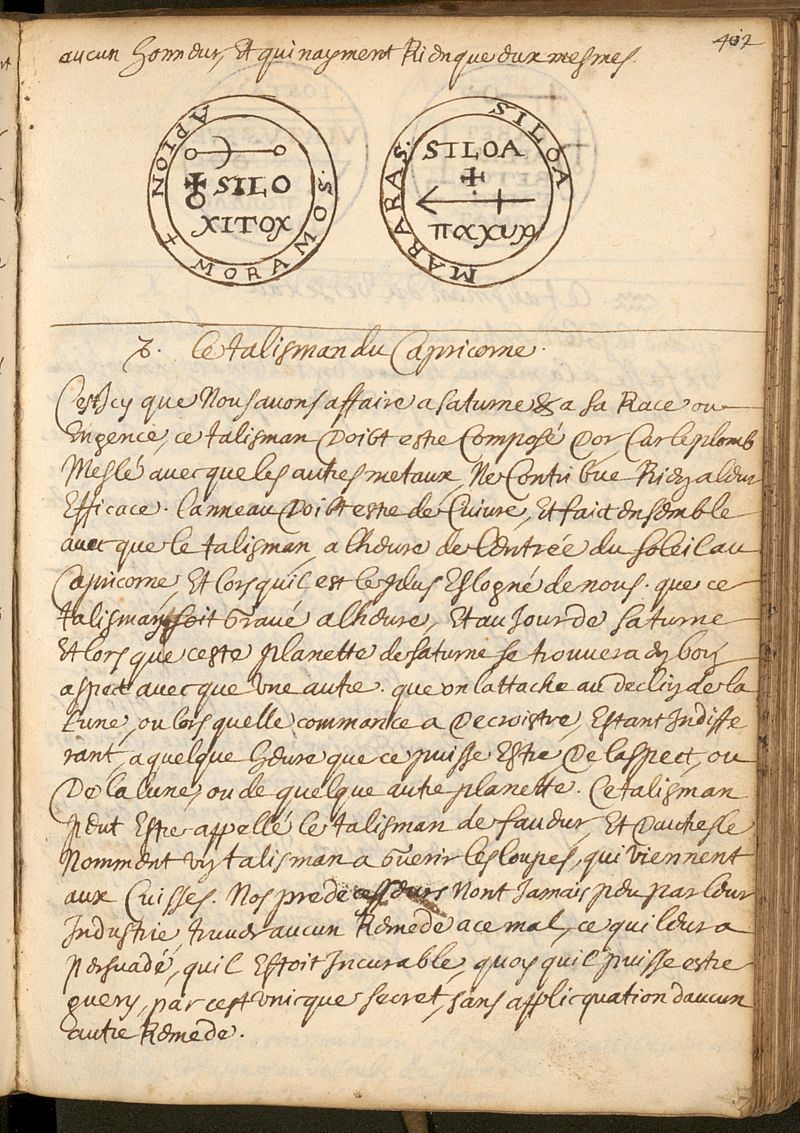 402
aucun honneur, Et qui nayment Rien que eux mesmes.
APION · SOMAROM +
SILO
XITOX
MARARAS · SILOA
SILOA
παχυχ
♑. Ce talisman du Capricorne.
C'est Icy que Nous avons affaire a saturne & a sa Race ou
Engence, ce talisman Doibt estre Composé D'or Car le plomb
Meslé avecque les autres metaux, Ne Contribue Rien a leur
Efficace. l'anneau Doibt estre de Cuivre, Et faict ensemble
avecque le talisman, a l'heure de l'entrée du soleil au
Capricorne, Et lors quil est le plus Eslogné de nous. que ce
talisman soit Gravé a l'heure, Et au Jour de saturne
Et lors que ceste planette de saturne se trouvera en bon
aspect avecque une autre. que on l'attache au declin de la
Lune, ou lors quelle commance a Decroistre, Estant Indiffe
rant, a quelque heure que ce puisse Estre De l'aspect, ou
De la lune, ou de quelque autre planette. Ce talisman
peut Estre appellé le talisman de faveur, Et D'autres le
Nomment un talisman a Guerir les loupes, qui Viennent
aux Cuisses. Nos predecesseurs N'ont Jamais peu par leur
Industrie, truver aucun Remede a ce mal, ce qui leur a
persuadé, quil Estoit Incurable, quoy quil puisse estre
guery, par cest unicque secret, sans applicquation d'aucun
autre Remede.